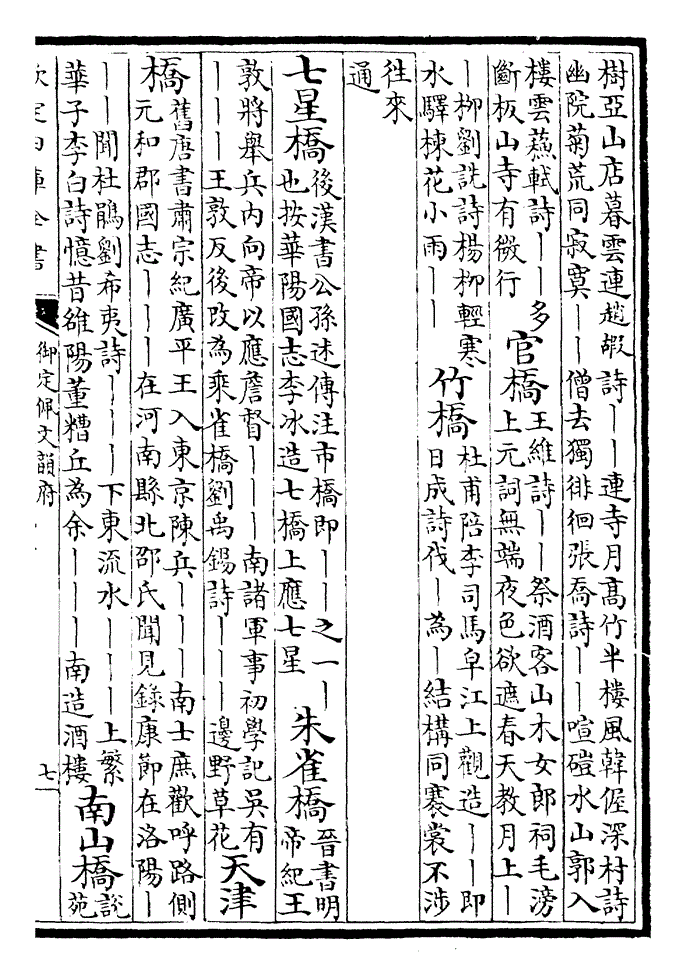 樹亞山店暮雲連趙嘏詩丨丨連寺月髙竹半樓風韓偓深村詩
幽院菊荒同寂寞丨丨僧去獨徘徊張喬詩丨丨喧磑水山郭入
樓雲蘇軾詩丨丨多
斷板山寺有微行
官橋
王維詩丨丨祭酒客山木女郎祠毛滂
上元詞無端夜色欲遮春天教月上丨
丨柳劉詵詩楊柳輕寒
水驛楝花小雨丨丨
竹橋
杜甫陪李司馬皁江上觀造丨丨即
日成詩伐丨為丨結構同褰裳不涉
徃來
通
七星橋
後漢書公孫述傳注市橋即丨丨之一丨
也按華陽國志李冰造七橋上應七星
朱雀橋
晉書明
帝紀王
敦將舉兵内向帝以應詹督丨丨丨南諸軍事初學記吳有
丨丨丨王敦反後改為乘雀橋劉禹錫詩丨丨丨邊野草花
天津
橋
舊唐書肅宗紀廣平王入東京陳兵丨丨丨南士庶歡呼路側
元和郡國志丨丨丨在河南縣北邵氏聞見錄康節在洛陽丨
丨丨聞杜鵑劉希夷詩丨丨丨丨下東流水丨丨丨丨上繁
華子李白詩憶昔雒陽董糟丘為余丨丨丨南造酒樓
南山橋
說
苑
欽定四庫全書
御定佩文韻府
七